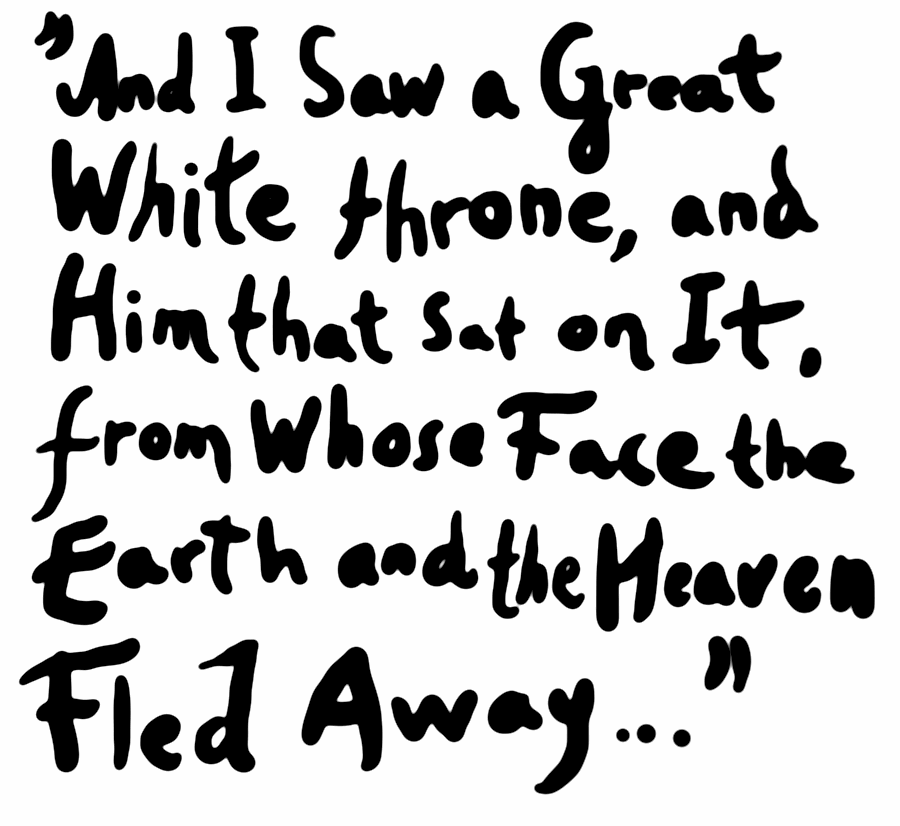 "And I Saw a Great
White throne, and
Him that Sat on It.
from Whose Face the
Earth and the Heaven
Fled Away..."